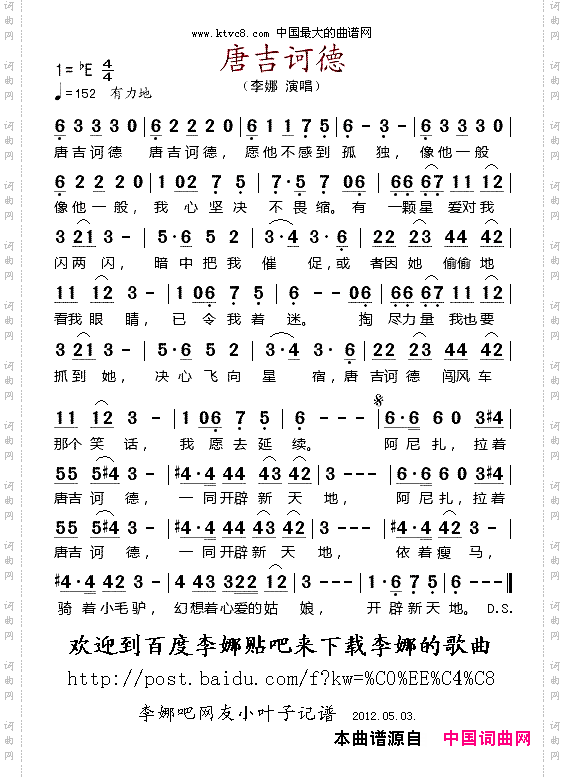 www.ktvc8.com 中国最大的曲谱网
唐吉诃德
1=♭E 4/4
♩=152 有力地
（李娜 演唱）
6 3 3 3 0 | 6 2 2 2 0 | 6 1 1 7 5 | 6 - 3 - | 6 3 3 3 0 |
唐吉诃德 唐吉诃德，愿他不感到孤独，像他一般
6 2 2 2 0 | 1 02 7 5 | 7·5 7 06 | 66 67 11 12 |
像他一般，我心坚决不畏缩。有一颗星爱对我
3 21 3 - | 5·6 5 2 | 3·4 3·6 | 22 23 44 42 |
闪两闪，暗中把我催促，或者因她偷偷地
11 12 3 - | 1 06 7 5 | 6 - - 06 | 66 67 11 12 |
看我眼睛，已令我着迷。掏尽力量我也要
3 21 3 - | 5·6 5 2 | 3·4 3·6 | 22 23 44 42 |
抓到她，决心飞向星宿，唐吉诃德闯风车
11 12 3 - | 1 06 7 5 | 6 - - - | 6·6 60 3#4 |
那个笑话，我愿去延续。阿尼扎，拉着
55 5#4 3 - | #4·4 44 43 42 | 3 - - - | 6·6 60 3#4 |
唐吉诃德，一同开辟新天地，阿尼扎，拉着
55 5#4 3 - | #4·4 44 43 42 | 3 - - - | 55 5#4 3 - |
唐吉诃德，一同开辟新天地，依着瘦马，
#4·4 42 3 - | 43 43 322 2 02 | 3 - - 2 | 1·6 7 5 | 6 - - - ‖
骑着小毛驴，幻想着心爱的姑娘，开辟新天地。D.S.
欢迎到百度李娜贴吧来下载李娜的歌曲
http://post.baidu.com/f?kw=%C0%EE%C4%C8
李娜吧网友小叶子记谱 2012.05.03.
本曲谱源自 中国词曲网